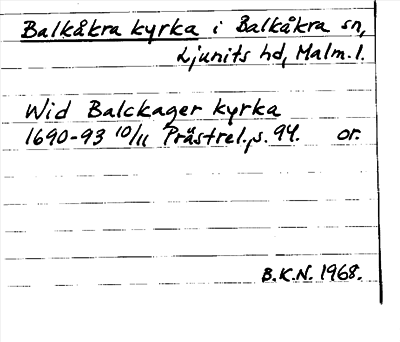 Balkåkra kyrka i Balkåkra sn,
Ljunits hd, Malm. l.
Wid Balckager kyrka
1690-93 10/11 Prästrel., s. 94. or.
B.K.N. 1968.